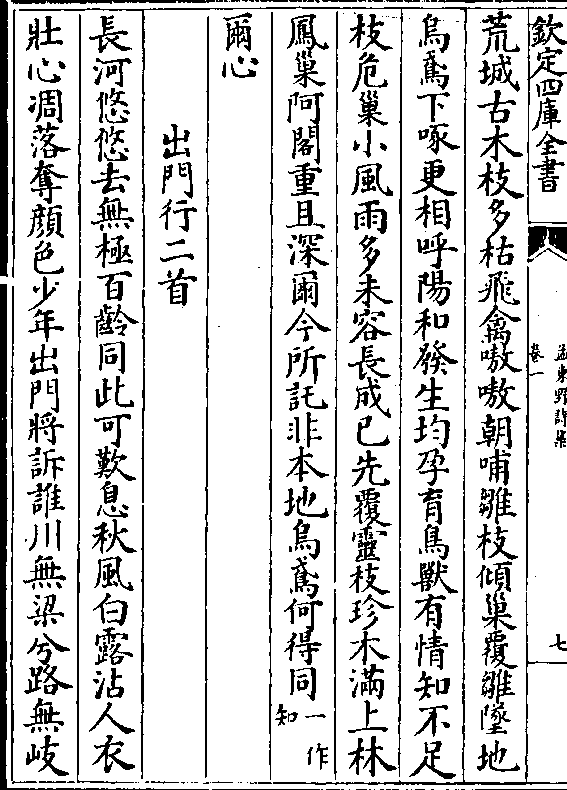 欽定四庫全書
孟東野詩集
卷一
七
荒城古木枝多枯飛禽嗷嗷朝哺雛枝傾巢覆雛墜地
烏鳶下啄更相呼陽和發生均孕育鳥獸有情知不足
枝危巢小風雨多未容長成已先覆靈枝珍木滿上林
鳳巢阿閣重且深爾今所託非本地烏鳶何得同一作知
爾心
出門行二首
長河悠悠去無極百齡同此可歎息秋風白露沾人衣
壯心凋落奪顔色少年出門將訴誰川無梁兮路無岐